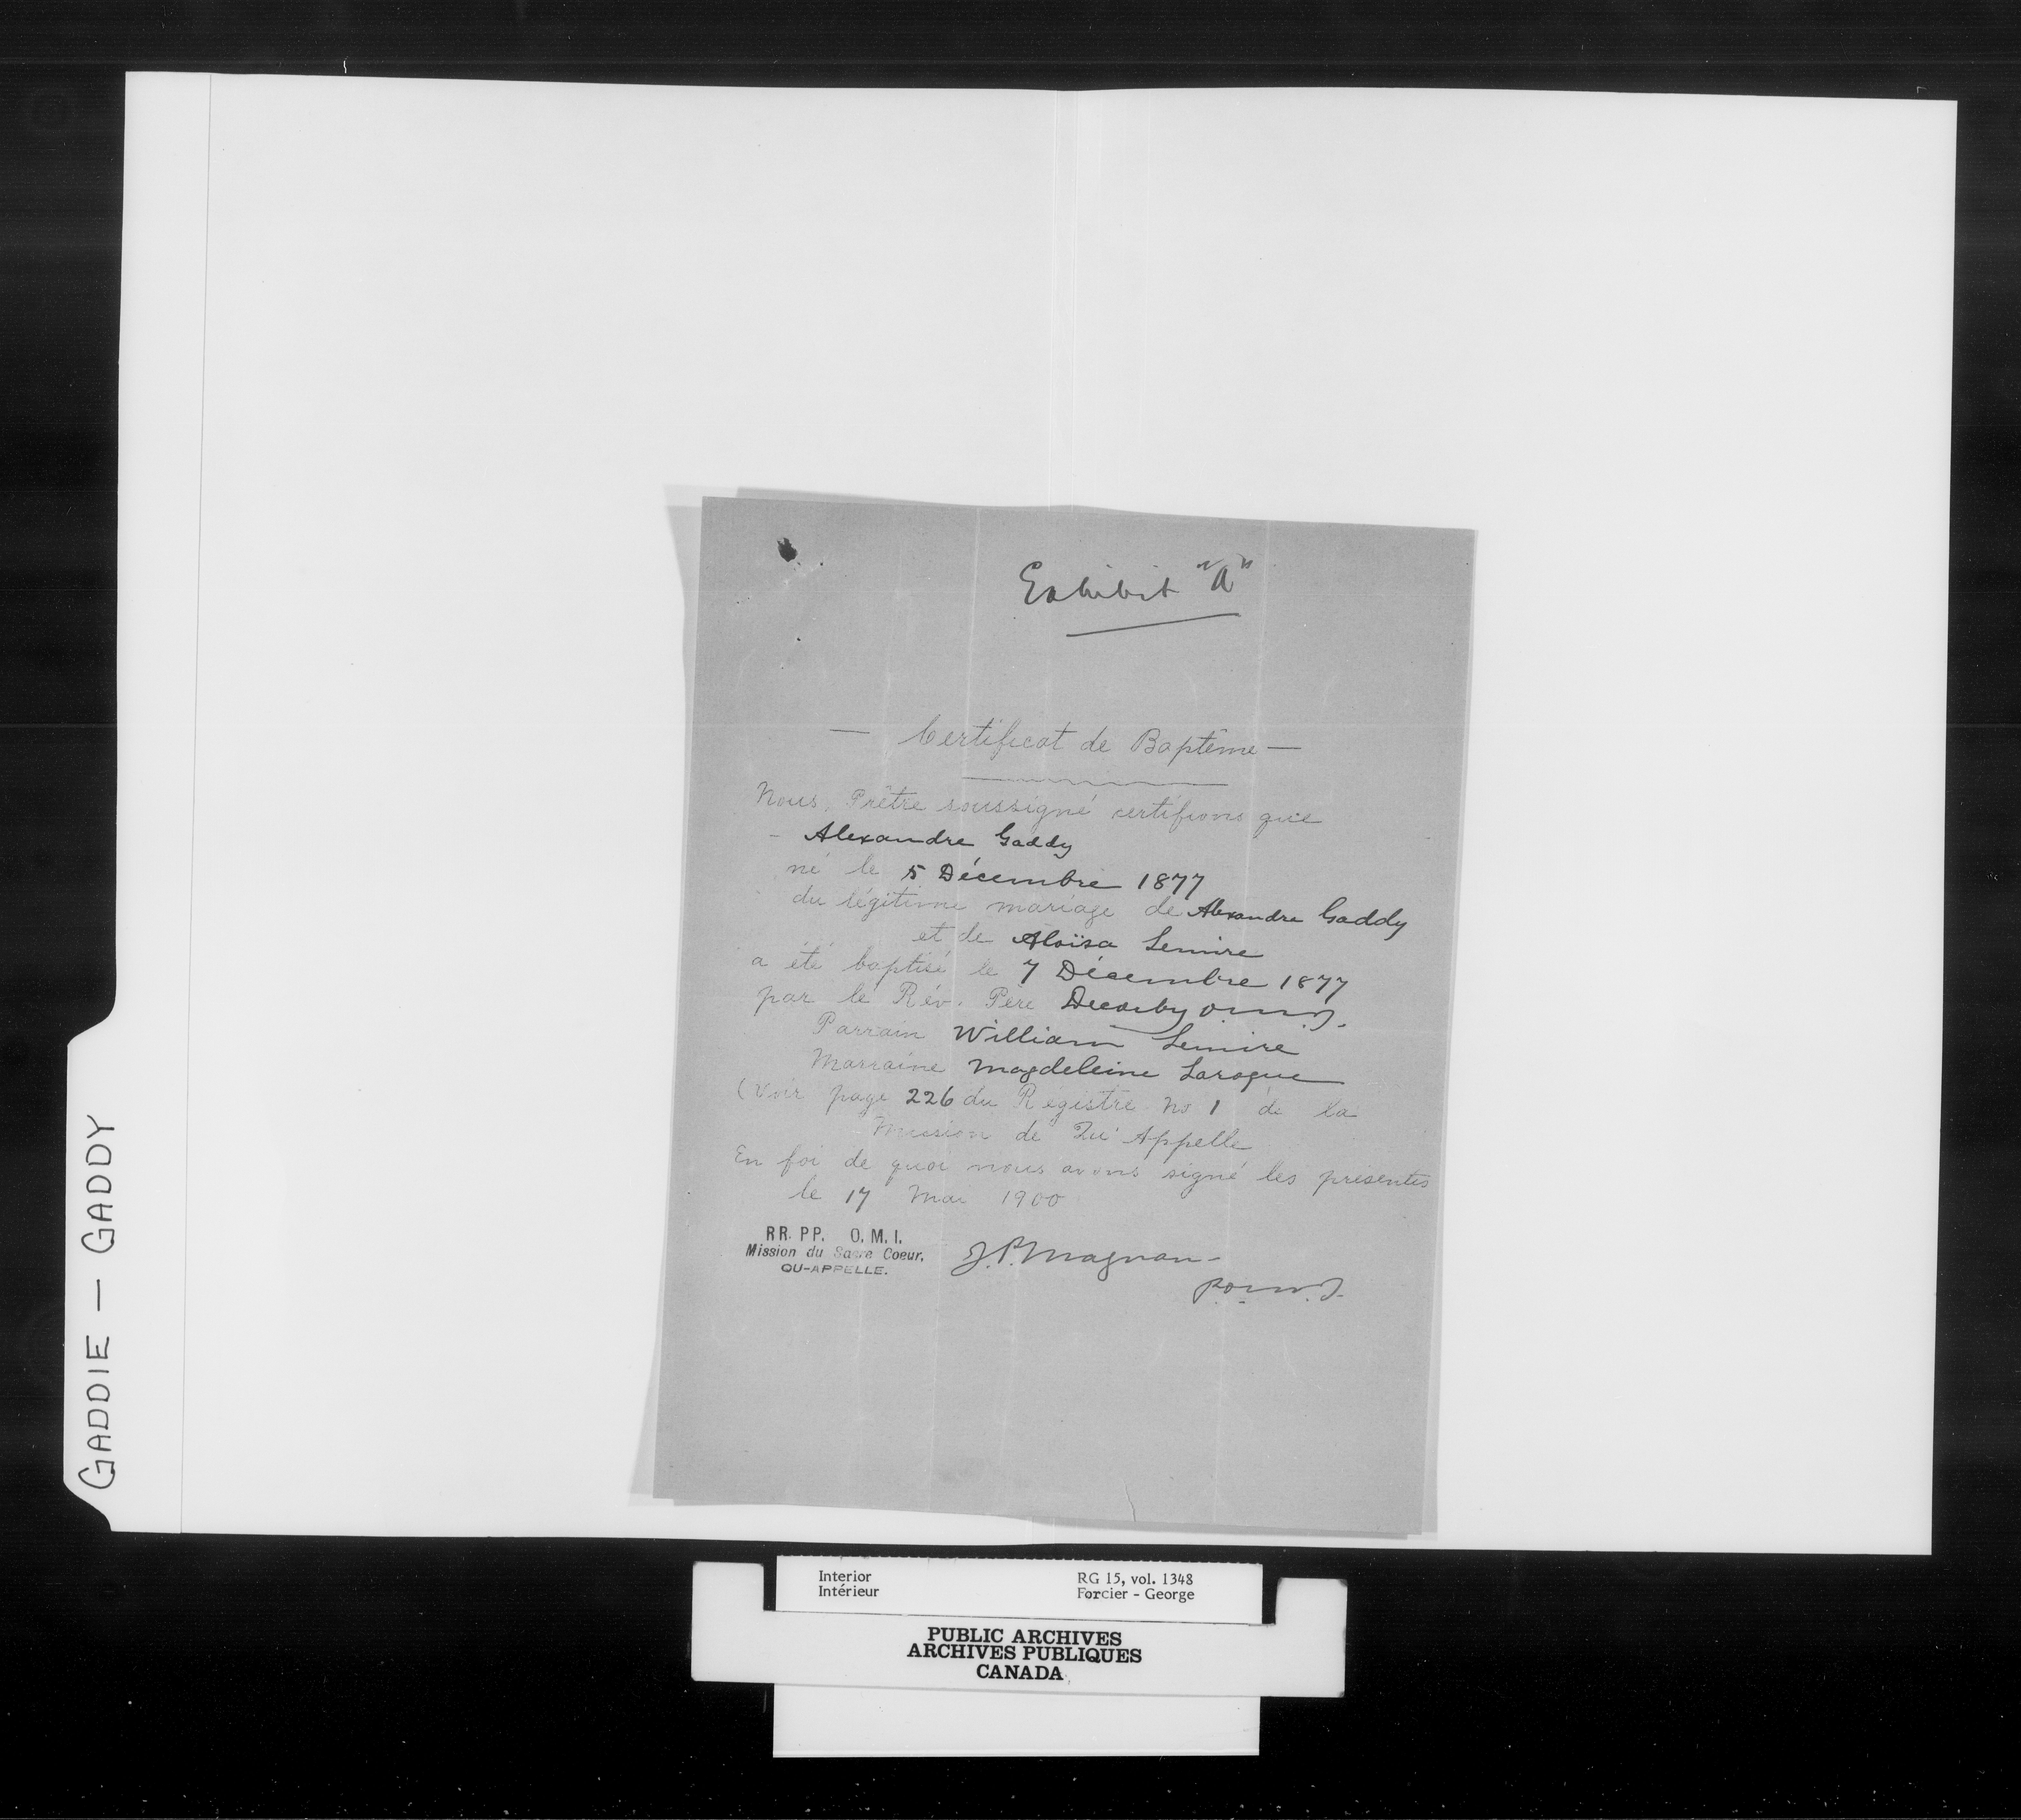 Exhibit "A"
— Certificat de Baptême —
Nous, Prêtre soussigné certifions que
- Alexandre Gaddy
né le 5 Décembre 1877
du légitime mariage de Alexandre Gaddy
et de Aloïsa Lemire
a été baptisé le 7 Décembre 1877
par le Rév. Père Decorby o.m.I.
Parrain William Lemire
Marraine Magdeleine Laroque
(Voir page 226 du Registre No 1 de la
Mission de Qu'Appelle
En foi de quoi nous avons signé les présentes
le 17 Mai 1900
RR. PP. O. M. I.
Mission du Sacre Coeur.
QU-APPELLE.
J. P. Magnan -
p.o.m.I.
GADDIE — GADDY
Interior
Intérieur
RG 15, vol. 1348
Forcier - George
PUBLIC ARCHIVES
ARCHIVES PUBLIQUES
CANADA